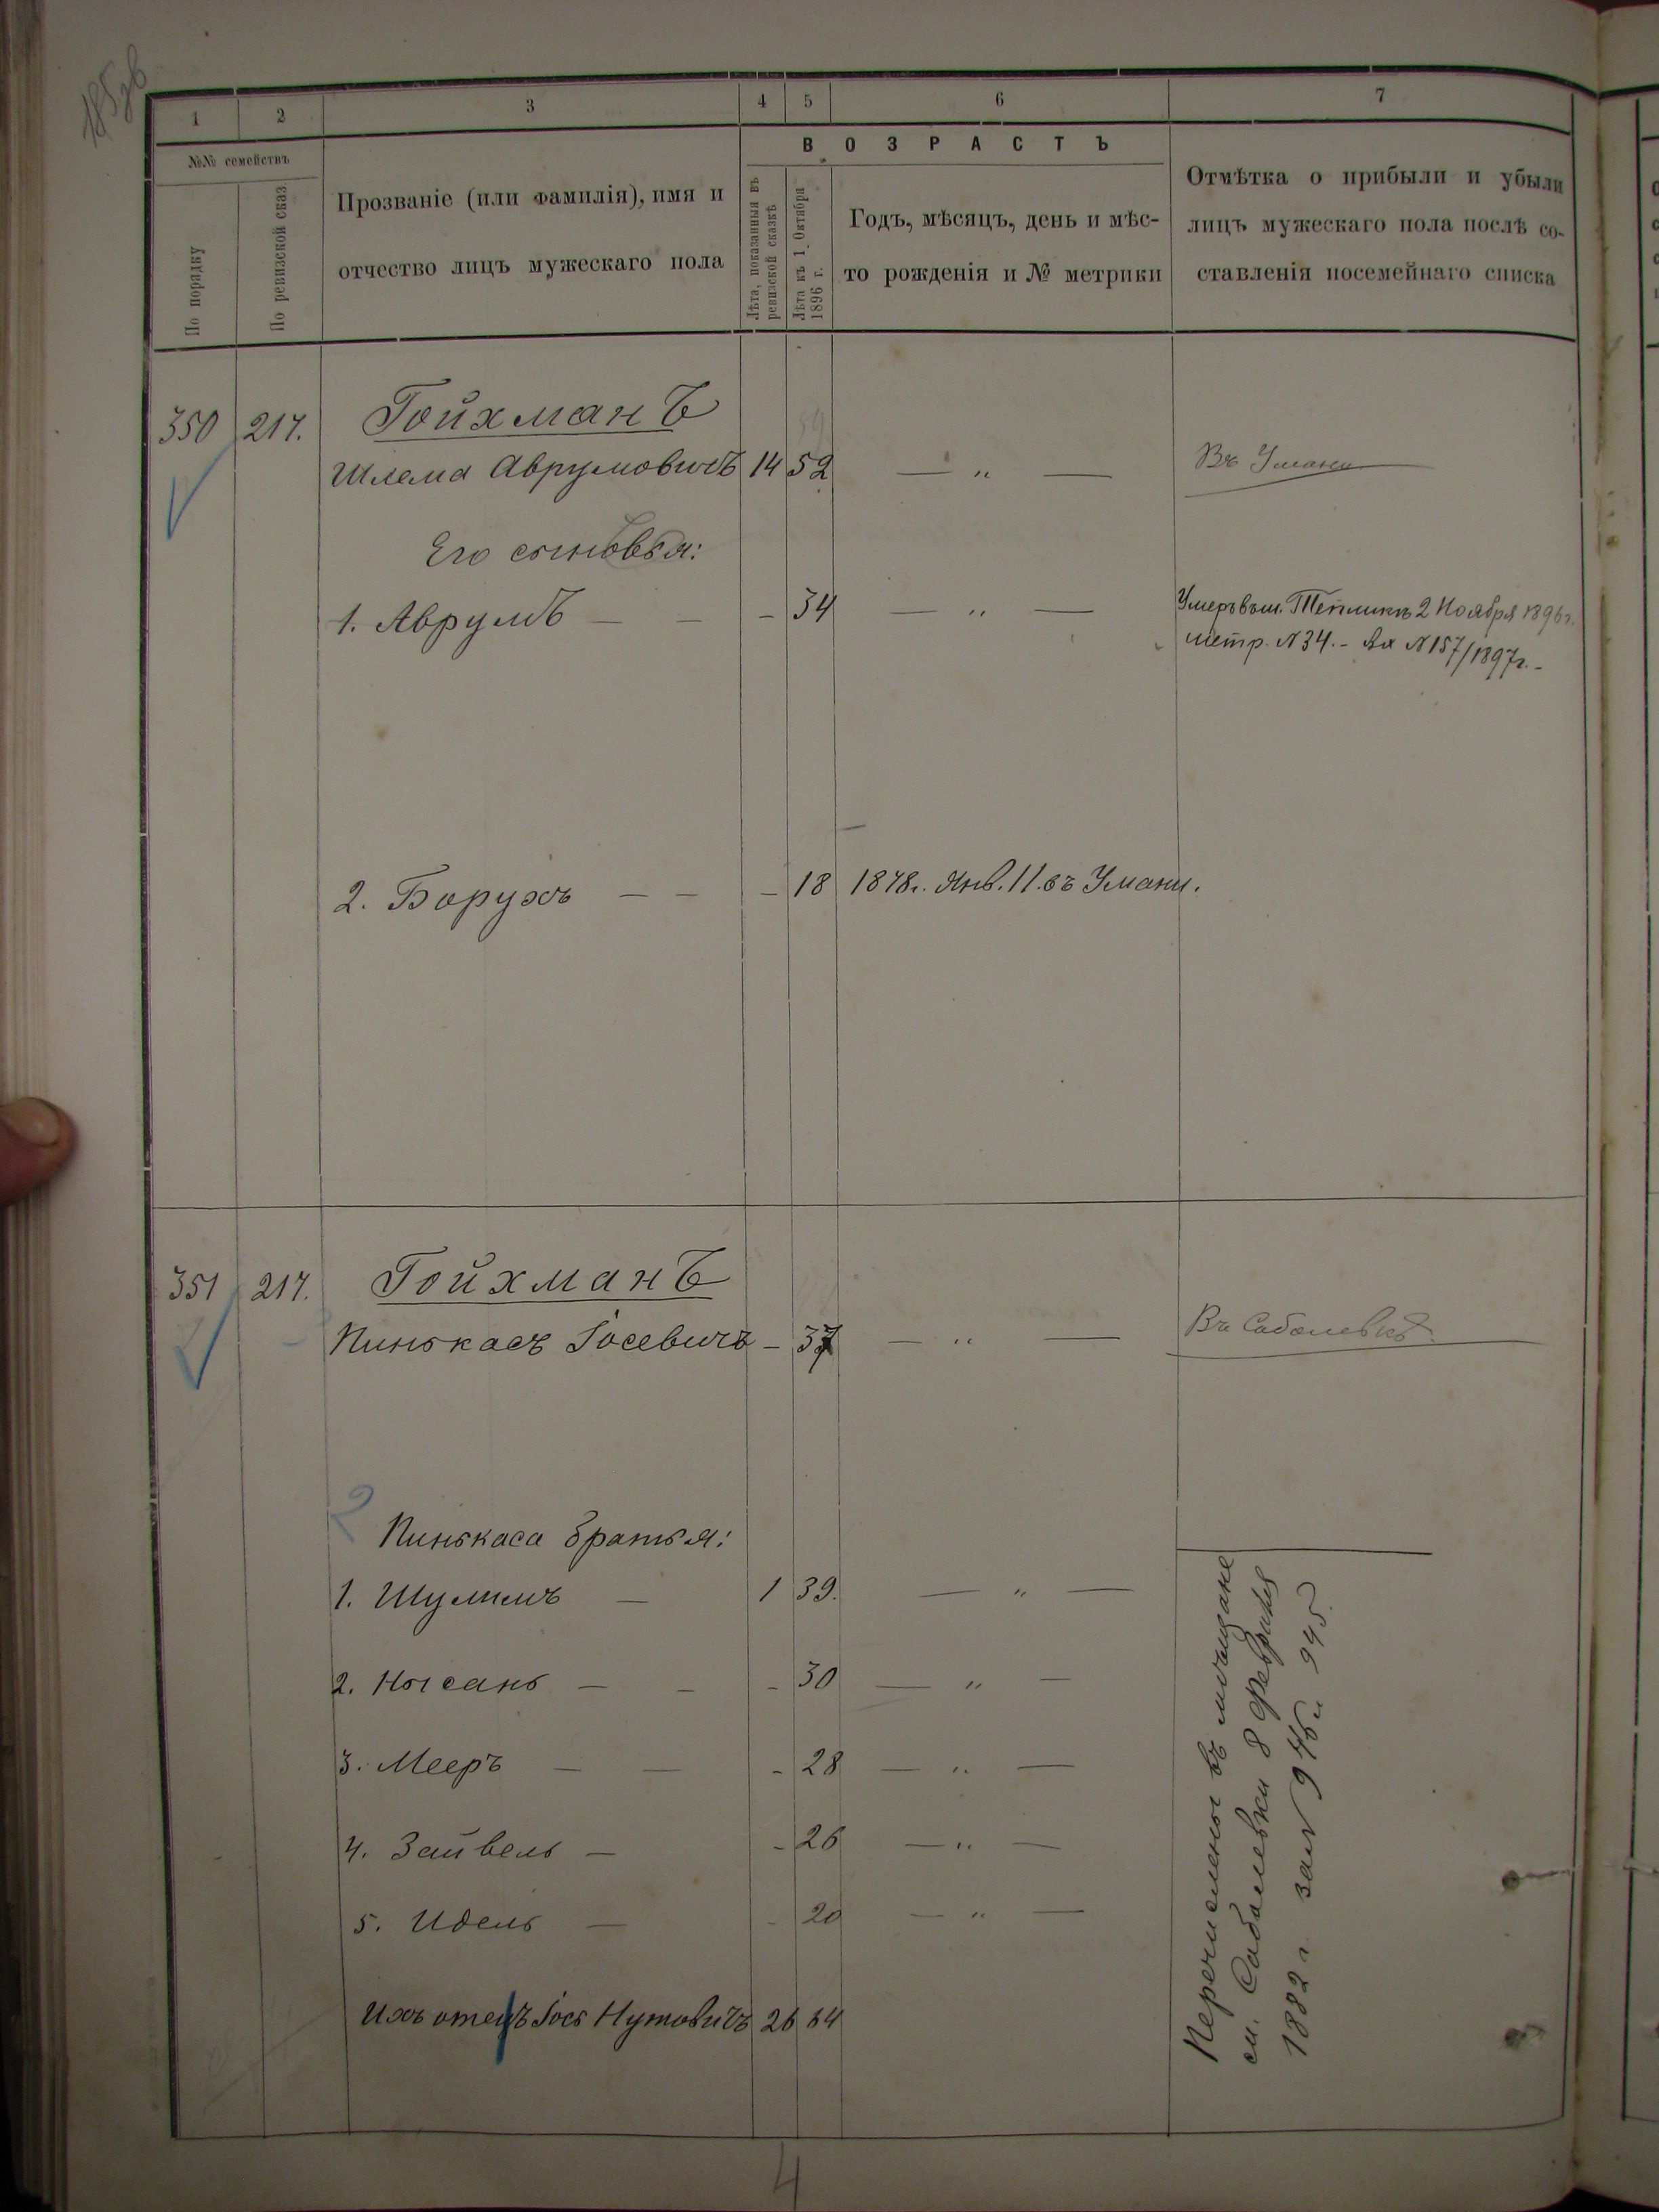 185об
1 2 3 4 5 6 7
№№ семействъ
По порядку
По ревизской сказ
Прозваніе (или фамилія), имя и
отчество лицъ мужескаго пола
ВОЗРАСТЪ
Лѣта, показанныя въ
ревизской сказкѣ
Лѣта къ 1 Октября
1896 г.
Годъ, мѣсяцъ, день и мѣс-
то рожденія и № метрики
Отмѣтка о прибыли и убыли
лицъ мужескаго пола послѣ со-
ставленія посемейнаго списка
350 217. Гойхманъ
59
Шлема Аврумовичъ 14 52 — „ — Въ Умани
Его сыновья:
1. Аврумъ — — - 34 — „ — Умеръ въ м. Тепликъ 2 Ноября 1896 г.
метр. №34. - Вх №157/1897г. -
2. Борухъ — — - 18 1878г. Янв. 11. въ Умани.
351 217. Гойхманъ
Пинькасъ Іосевичъ - 37 — „ — Въ Соболевкѣ
Пинькаса братья:
1. Шулимъ — 1 39. — „ —
2. Нысань — — - 30 — „ —
3. Мееръ — — - 28 — „ —
4. Зайвель — - 26 — „ —
5. Идель — - 20 — „ —
Ихъ отецъ Іось Нутовичъ 26 64
Перечислены въ мѣщане
м. Соболевки 8 Февраля
1882 г. за № 946 и 945
4